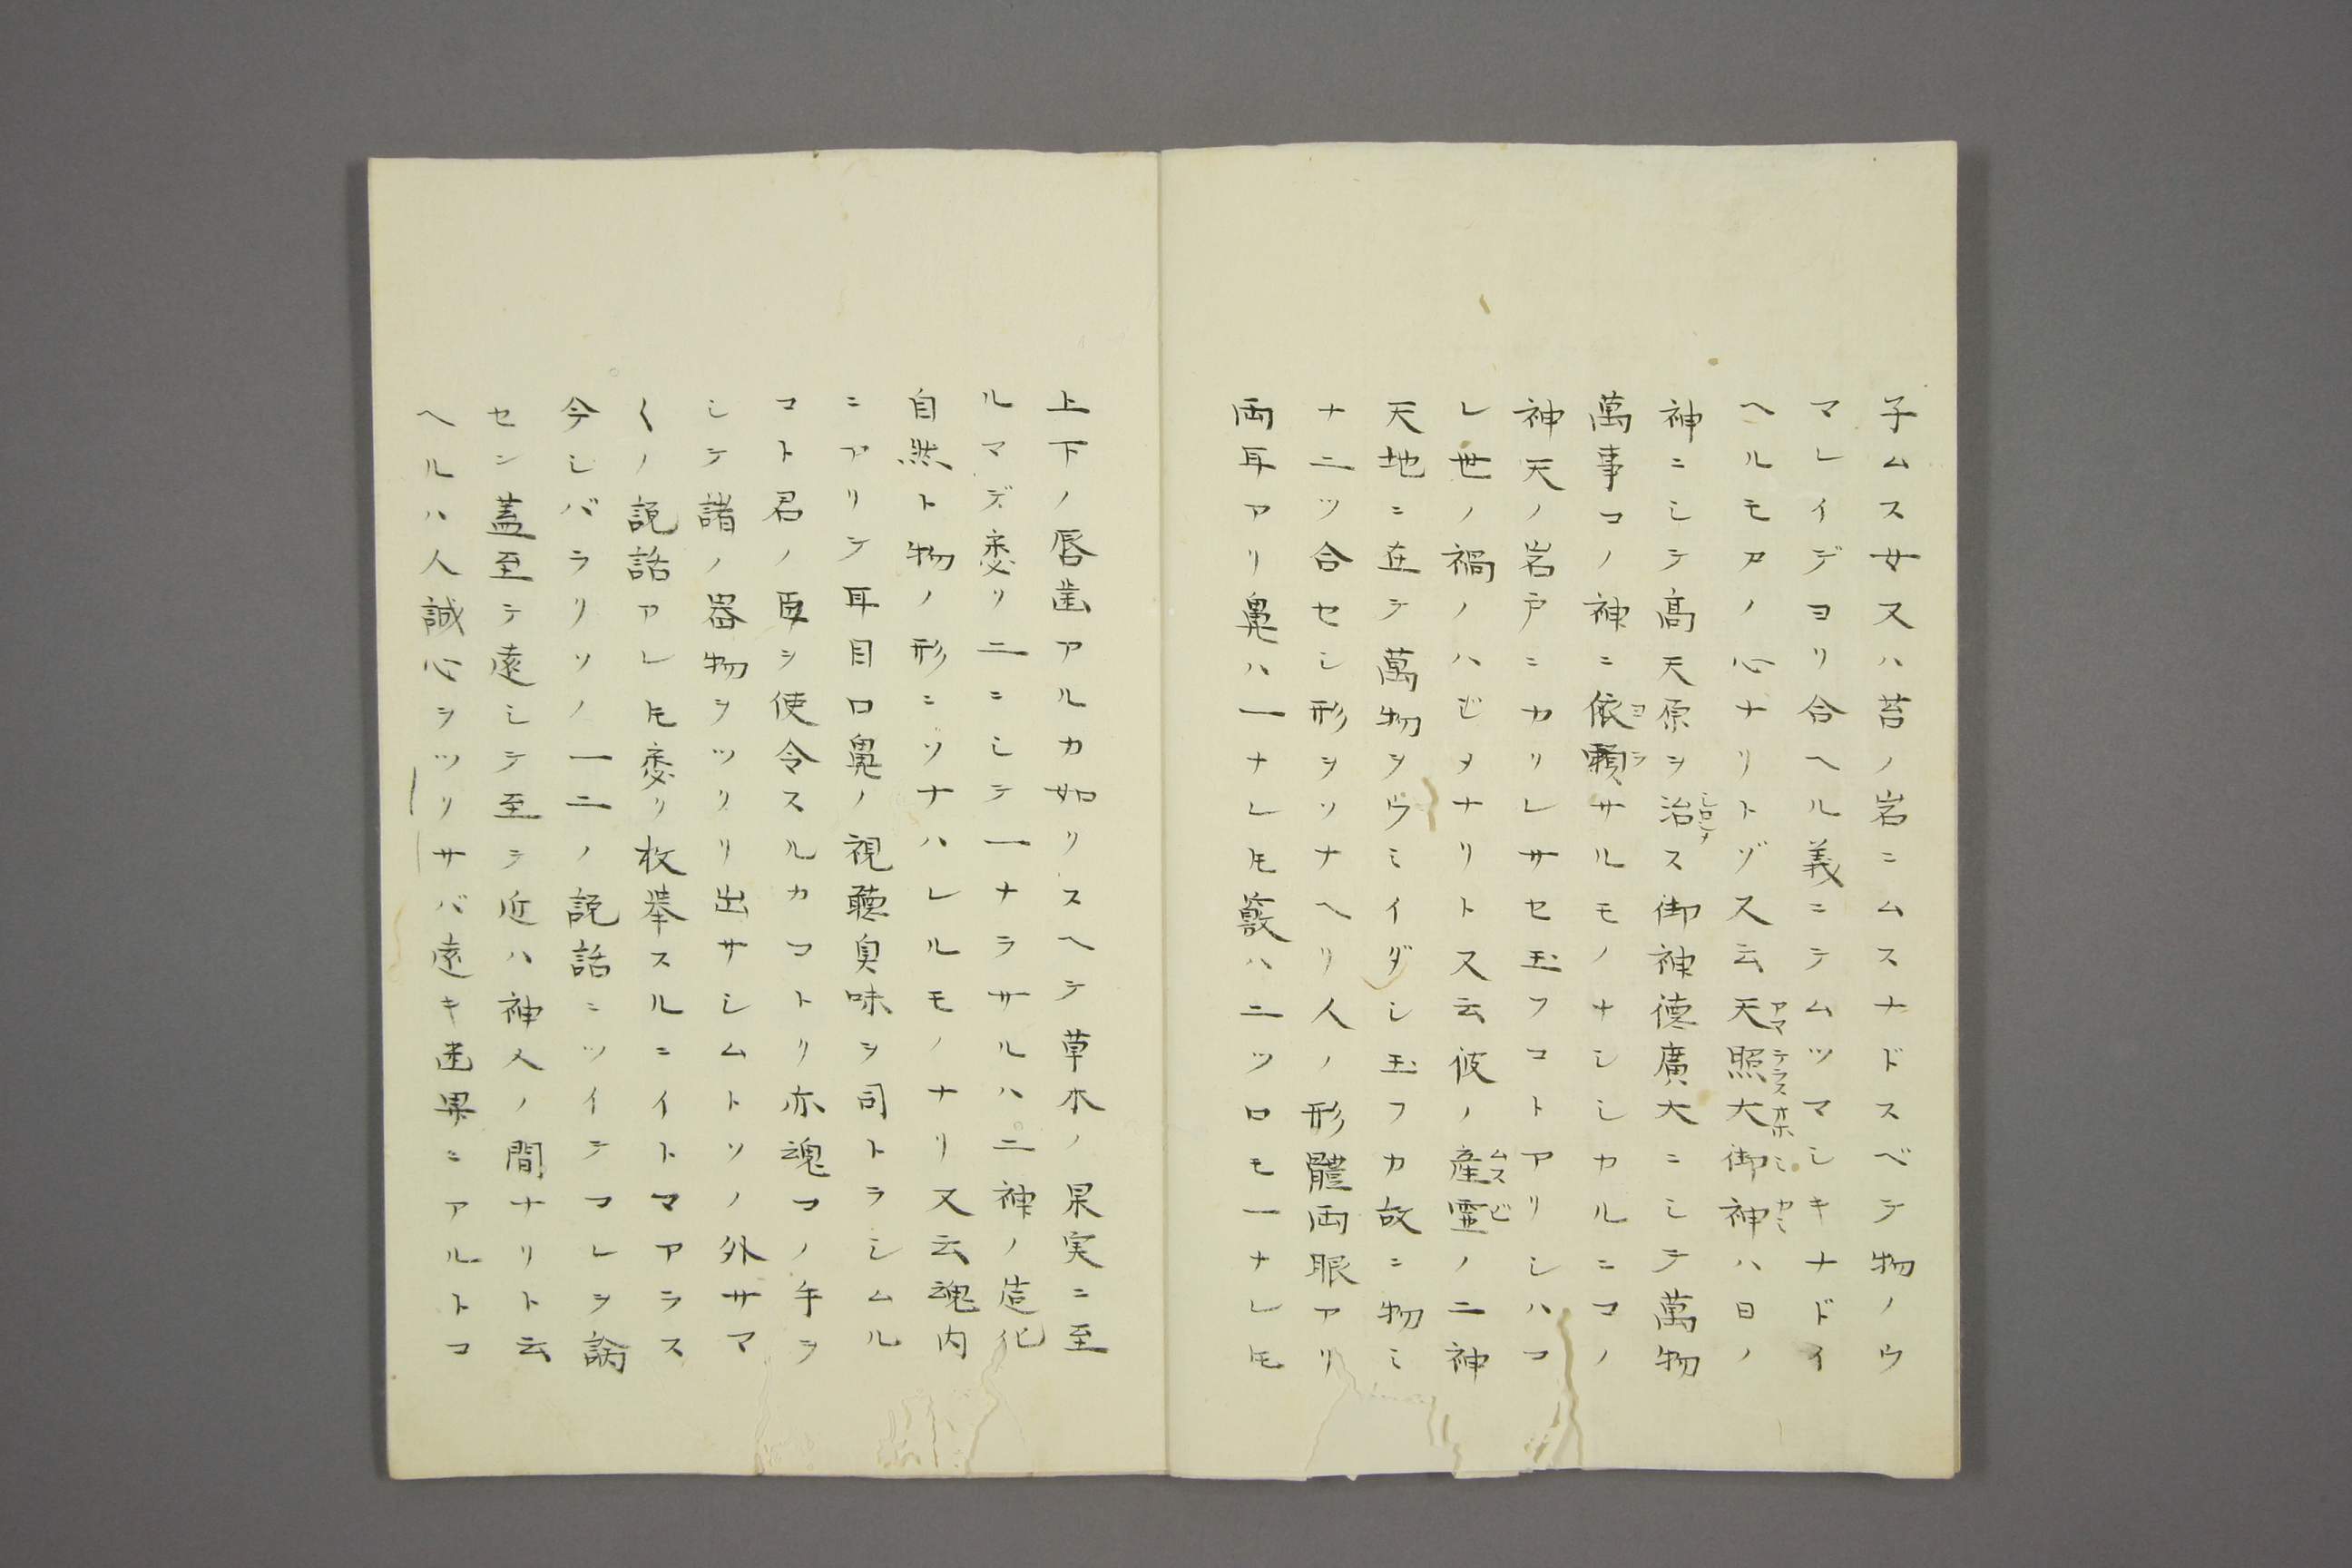 子ムス女又ハ苔ノ岩ニムスナドスベテ物ノウ
マレイデヨリ合ヘル義ニテムツマシキナドイ
ヘルモアノ心ナリトゾ又云天照大御神ハ日ノ
神ニシテ高天原ヲ治ス御神徳廣大ニシテ萬物
萬事コノ神ニ依頼サルモノナシシカルニコノ
神天ノ岩戸ニカリレサセ玉フコトアリシハコ
レ世ノ禍ノハジメナリト又云彼ノ産霊ノ二神
天地ニ在テ萬物ヲウミイダシ玉フカ故ニ物ミ
ナ二ツ合セシ形ヲソナヘリ人ノ形體両眼アリ
両耳アリ鼻ハ一ナレ𪜈竅ハ二ツロモ一ナレ𪜈
上下ノ唇歯アルカ如リスヘテ草木ノ果実ニ至
ルマデ悉リ二ニシテ一ナラサルハ二神ノ造化
自然ト物ノ形ニソナハレルモノナリ又云魂内
ニアリテ耳目口鼻ノ視聴臭味ヲ司トラシムル
コト君ノ臣ヲ使令スルカコトリ亦魂コノ手ヲ
シテ諸ノ器物ヲツリリ出サシムトソノ外サマ
〱ノ説話アレ𪜈悉リ枚挙スルニイトマアラス
今シバラリソノ一二ノ説話ニツイテコレヲ論
セン蓋至テ遠シテ至テ近ハ神人ノ間ナリト云
ヘルハ人誠心ヲツリサバ遠キ迷界ニアルトコ
アマテラスオホミカミ
シロシメ
ヨラ
ムスビ